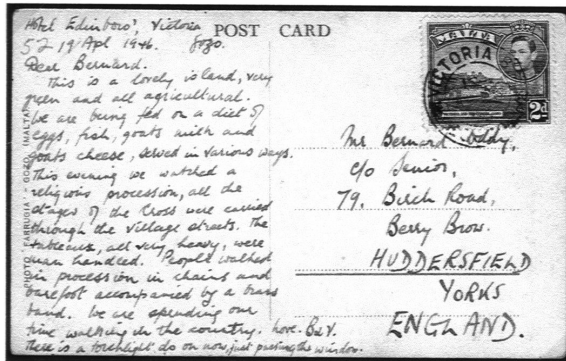 Hotel Edinboro', Victoria
POST CARD
19 Apl 1946. Gozo.
Dear Bernard.
This is a lovely island, very
green and all agricultural.
We are being fed on a diet of
eggs, fish, goats milk and
goats cheese, served in various ways.
This evening we watched a
religious procession, all the
stages of the Cross were carried
through the village streets. The
tableaux, all very heavy, were
man handled. People walked
in procession in chains and
barefoot accompanied by a brass
band. We are spending our
time walking in the country. love.
There is a torchlight do on now, just passing the window.
PHOTO "FARRUGIA" - GOZO (MALTA)
VICTORIA
MALTA
2d
Mr Bernard Oddy,
c/o Senior,
79. Birch Road,
Berry Brow.
HUDDERSFIELD
YORKS
ENGLAND.